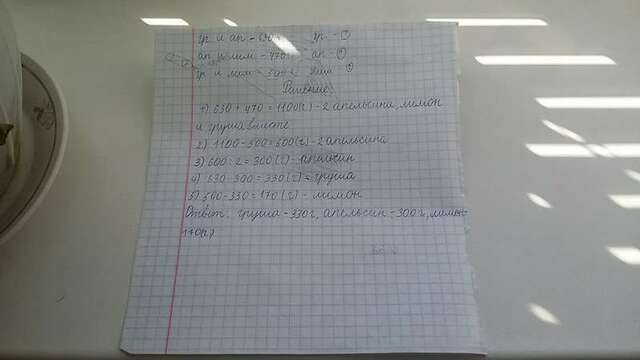 гр и ап - 630г гр - ?
ап и лим - 470г ап - ?
гр и лим - 500г лим ?
Решение
1) 630 + 470 = 1100(г) - 2 апельсина, лимон
и груша вместе
2) 1100 - 500 = 600(г) - 2 апельсина
3) 600 : 2 = 300 (г) - апельсин
4) 630 - 300 = 330 (г) = груша
5) 500 - 330 = 170 (г) - лимон
Ответ: груша - 330г, апельсин - 300г, лимон
170(г)